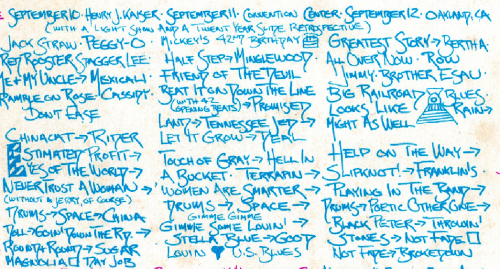 SEPTEMBER 10 · HENRY J. KAISER · SEPTEMBER 11 · CONVENTION CENTER · SEPTEMBER 12 · OAKLAND, CA
(WITH A LIGHT SHOW AND A TWENT YEAR SLIDE RETROSPECTIVE)
JACK STRAW · PEGGY-O
RED ROOSTER STAGGER LEE
ME + MY UNCLE → MEXICALI
RAMBLE ON ROSE · CASSIDY
DON'T EASE
CHINACAT → RIDER
ESTIMATED PROFIT →
EYES OF THE WORLD →
NEVER TRUST A WOMAN →
(WITHOUT A JERRY, OF COURSE)
DRUMS → SPACE → CHINA
DOLL → GOIN' DOWN THE RD. →
ROUND + ROUND → SUGAR
MAGNOLIA DAY JOB
MICKEY'S 42ND BIRTHDAY
HALF STEP → MINGLEWOOD
FRIEND OF THE DEVIL
BEAT IT ON DOWN THE LINE
(WITH 42 OPENING BEATS) → PROMISED
LAND → TENNESSEE JED →
LET IT GROW → DEAL
TOUCH OF GRAY → HELL IN
A BUCKET · TERRAPIN →
WOMEN ARE SMARTER →
DRUMS → SPACE →
GIMME GIMME
GIMME SOME LOVIN' →
STELLA BLUE → GOOD
LOVIN U.S. BLUES
GREATEST STORY → BERTHA
ALL OVER NOW · ROW
JIMMY · BROTHER ESAU
BIG RAILROAD BLUES
LOOKS LIKE RAIN →
MIGHT AS WELL
HELP ON THE WAY →
SLIPKNOT! → FRANKLIN'S
PLAYING IN THE BAND →
DRUMS → POETIC OTHER ONE →
BLACK PETER → THROWIN'
STONES → NOT FADE
NOT FADE → BROKEDOWN